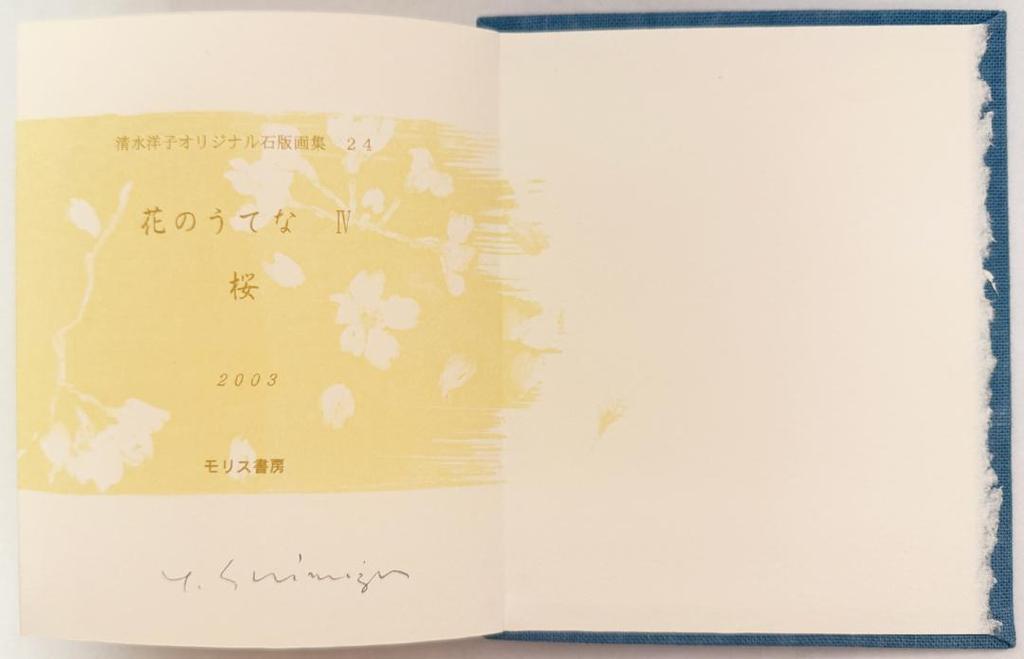 清水洋子オリジナル石版画集 24
花のうてな Ⅳ
桜
2003
モリス書房
Y. Shimizu